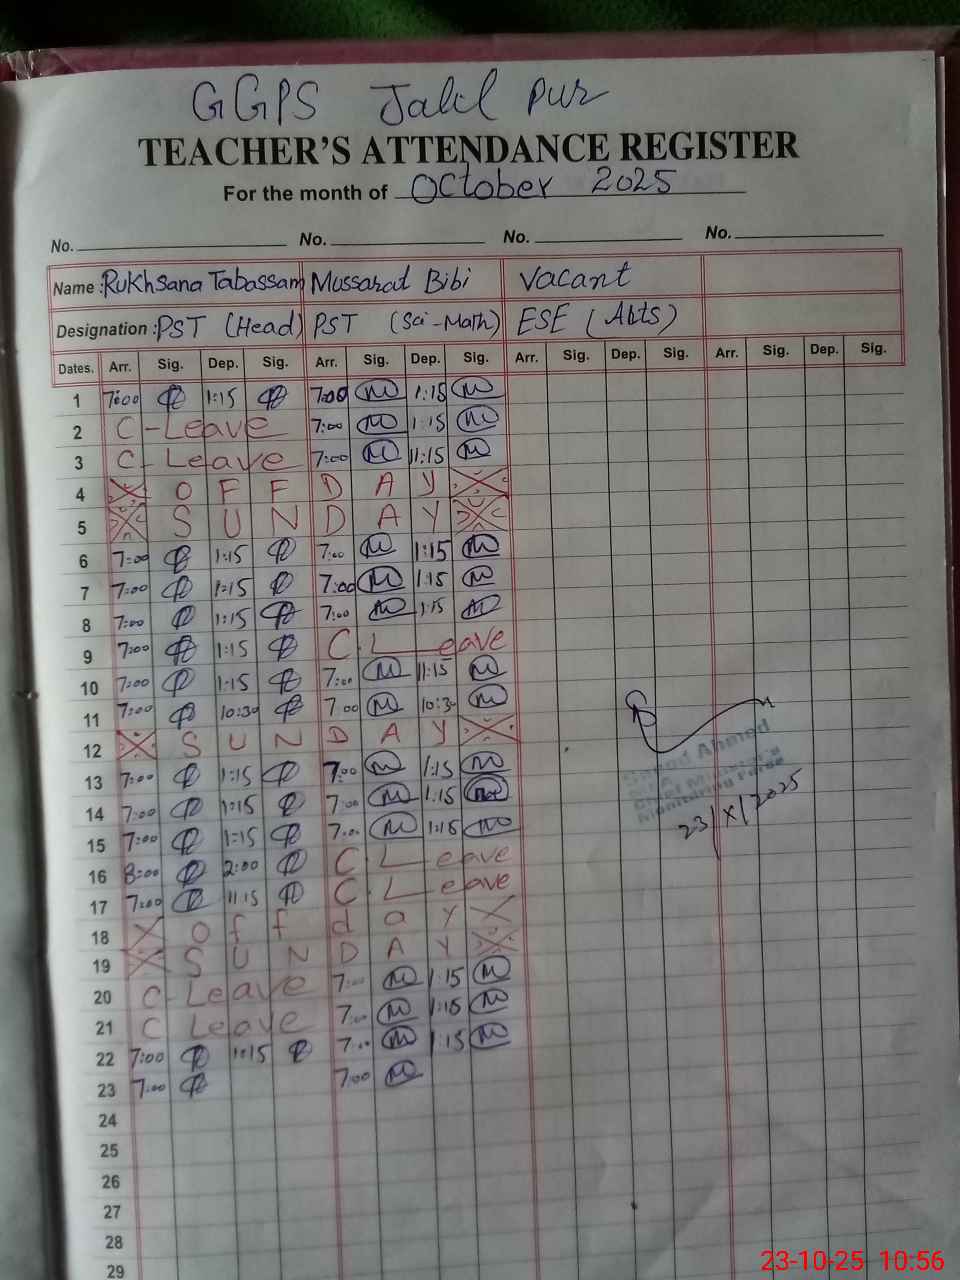 GGPS Jalil Pur
TEACHER'S ATTENDANCE REGISTER
For the month of October 2025
No. No. No. No.
Name : Rukhsana Tabassam Mussarat Bibi Vacant
Designation : PST (Head) PST (Sci-Math) ESE (Arts)
Dates. Arr. Sig. Dep. Sig. Arr. Sig. Dep. Sig. Arr. Sig. Dep. Sig. Arr. Sig. Dep. Sig.
1 7:00 1:15 7:00 1:15
2 C-Leave 7:00 1:15
3 C-Leave 7:00 1:15
4 OFF DAY
5 SUNDAY
6 7:00 1:15 7:00 1:15
7 7:00 1:15 7:00 1:15
8 7:00 1:15 7:00 1:15
9 7:00 1:15 C.Leave
10 7:00 1:15 7:00 1:15
11 7:00 10:30 7:00 10:30
12 SUNDAY
13 7:00 1:15 7:00 1:15
14 7:00 1:15 7:00 1:15
15 7:00 1:15 7:00 1:15
16 8:00 2:00 C Leave
17 7:00 1:15 C.Leave
18 Off day
19 SUNDAY
20 C-Leave 7:00 1:15
21 C Leave 7:00 1:15
22 7:00 1:15 7:00 1:15
23 7:00 7:00
24
25
26
27
28
29
Saeed Ahmed
Chief Minister's
Monitoring Force
23/X/2025
23-10-25 10:56